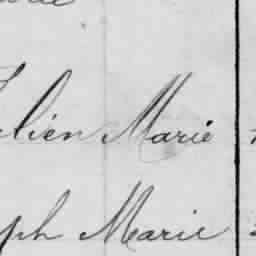 ulien Marie
ph Marie